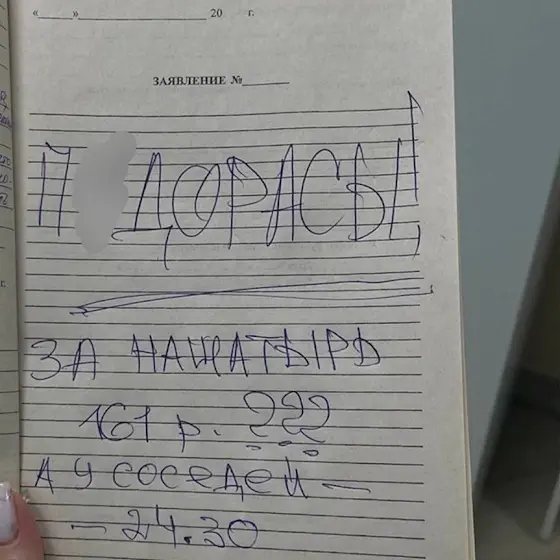 «____»____________________ 20 г.
ЗАЯВЛЕНИЕ №_______
П ДОРАСЫ
ЗА НАШАТЫРЬ
161 р. ???
А У СОСЕДЕЙ —
— 24.30